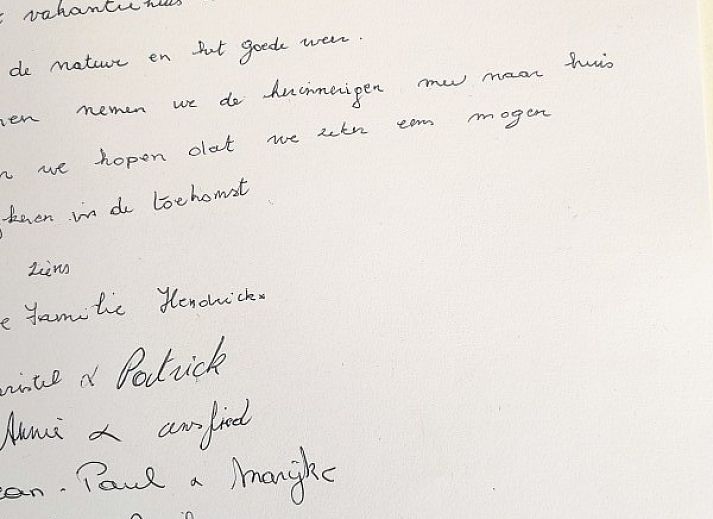 vakantiehuis
de natuur en het goede weer.
nemen we de herinnerigen mee naar huis
we hopen dat we zeker eens mogen
in de toekomst
ziens
Familie Hendrickx
& Patrick
Annie & ansfried
Paul & Marijke